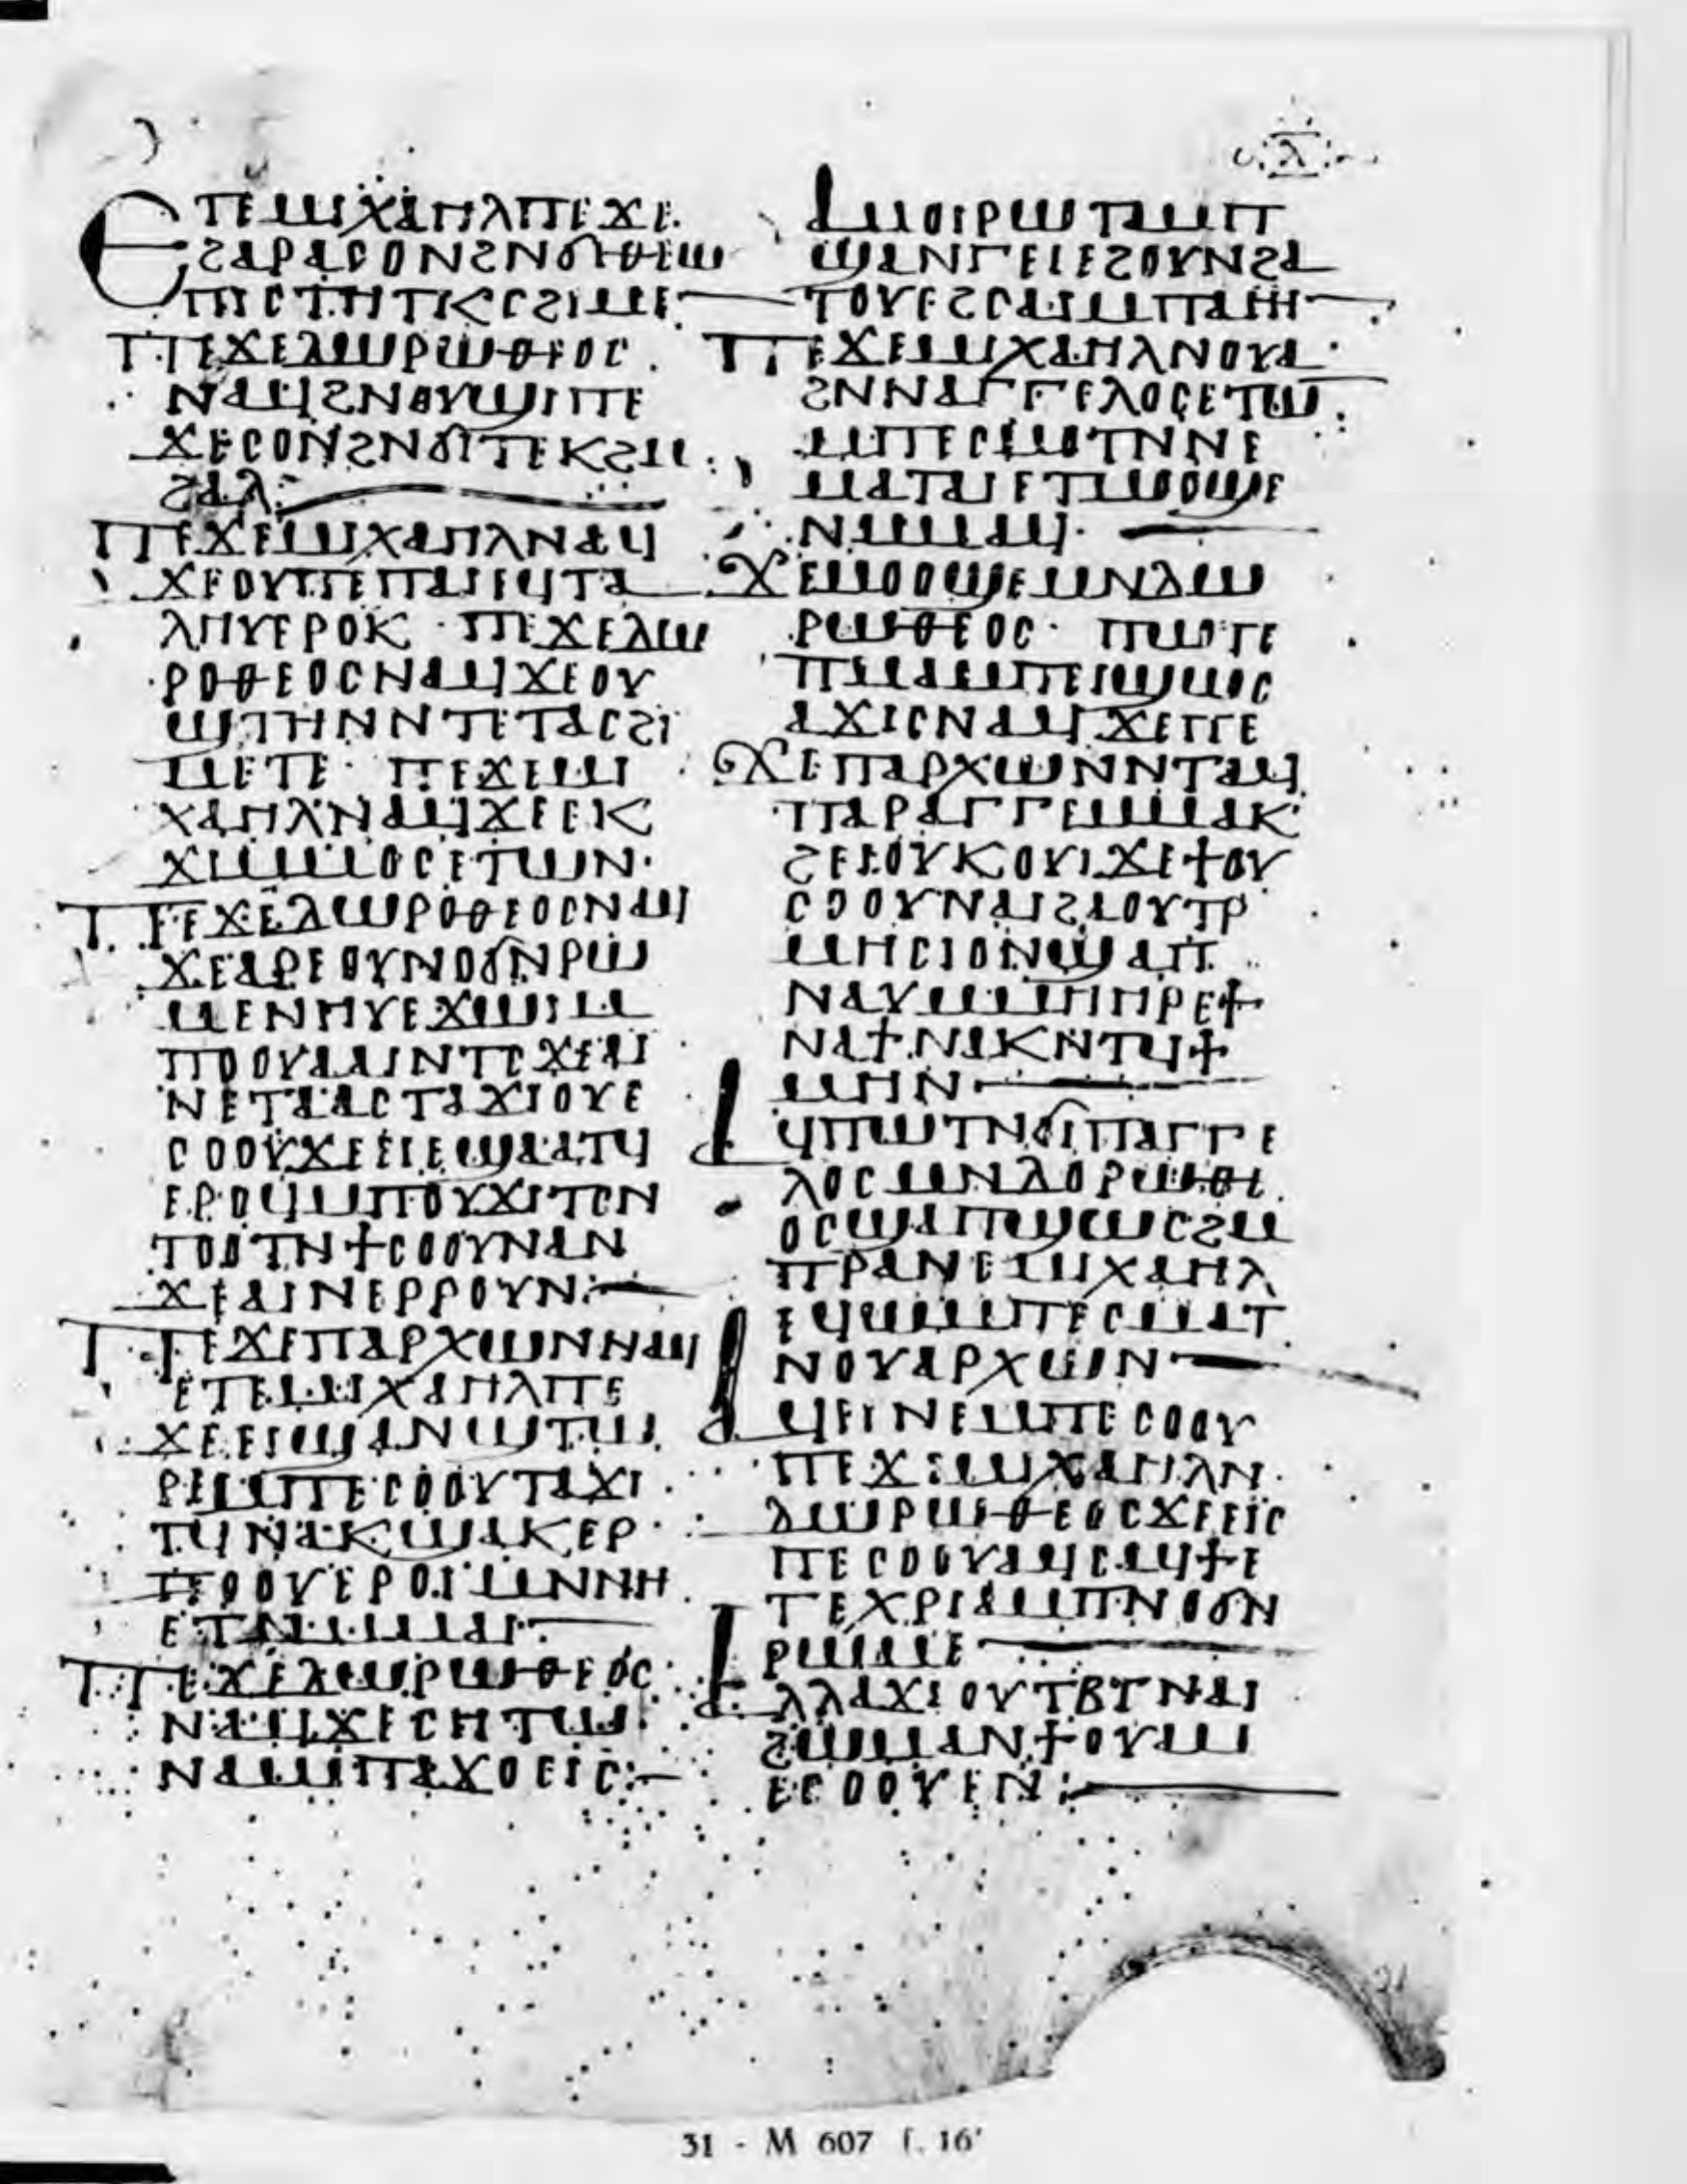 ⲗ
ⲉⲧⲉⲙⲓⲭⲁⲏⲗⲡⲉϫⲉ
ϩⲁⲣⲁⲥⲟⲛϩⲛϭⲓⲑⲉⲱ
ⲡⲓⲥⲧⲏⲧⲕⲥϩⲓⲙⲉ
ⲡⲉϫⲉⲇⲱⲣⲱⲑⲉⲟⲥ
ⲛⲁϥϩⲛⲟⲩϣⲡⲉ
ϫⲉⲥⲟⲛϩⲛϭⲓⲧⲉⲕϩⲙ
ϩⲁⲗ
ⲡⲉϫⲉⲙⲓⲭⲁⲏⲗⲛⲁϥ
ϫⲉⲟⲩⲡⲉⲡⲁⲓⲉϥⲧⲁ
ⲗⲏⲩⲉⲣⲟⲕ · ⲡⲉϫⲉⲇⲱ
ⲣⲟⲑⲉⲟⲥⲛⲁϥϫⲉⲟⲩ
ϣⲧⲏⲛⲛⲧⲉⲧⲁⲥϩⲓ
ⲙⲉⲧⲉ · ⲡⲉϫⲉⲙⲓ
ⲭⲁⲏⲗⲛⲁϥϫⲉⲉⲕ
ϫⲓⲙⲙⲟⲥⲉⲧⲱⲛ·
ⲡⲉϫⲉⲇⲱⲣⲟⲑⲉⲟⲥⲛⲁϥ
ϫⲉⲁⲣⲉⲟⲩⲛⲟϭⲛⲣⲱ
ⲙⲉⲛⲏⲩⲉϫⲱⲓⲙ
ⲡⲟⲟⲩⲁⲓⲛⲧⲥϫⲉⲁⲓ
ⲛⲉⲧⲁⲁⲥⲧⲁϫⲓⲟⲩⲉ
ⲥⲟⲟⲩϫⲉⲉⲓⲉϣⲁⲁⲧϥ
ⲉⲣⲟϥⲙⲡⲟⲩϫⲓⲧⲥⲛ
ⲧⲟⲟⲧⲛϯⲥⲟⲟⲩⲛⲁⲛ
ϫⲉⲁⲓⲛⲉⲣⲣⲟⲩⲛ:
ⲡⲉϫⲉⲡⲁⲣⲭⲱⲛⲛⲁϥ
ⲉⲧⲉⲙⲓⲭⲁⲏⲗⲡⲉ
ϫⲉⲉⲓϣⲁⲛϣⲧⲱ
ⲣⲉⲙⲡⲉⲥⲟⲟⲩⲧⲁϫⲓ
ⲧϥⲛⲁⲕϣⲁⲕⲉⲣ
ⲡⲟⲟⲩⲉⲣⲟⲓⲙⲛⲛⲏ
ⲉⲧⲛⲙⲙⲁⲓ:
ⲡⲉϫⲉⲇⲱⲣⲱⲑⲉⲟⲥ
ⲛⲁϥϫⲉⲥⲏⲧⲱ
ⲛⲁⲙⲡⲁϫⲟⲉⲓⲥ:
ⲁⲙⲟⲓⲣⲱⲧⲁⲙⲡ
ϣⲁⲛⲅⲉⲓⲉϩⲟⲩⲛϩⲁ
ⲧⲟⲩⲉϩⲥⲁⲓⲙⲡⲁⲏⲓ
ⲡⲉϫⲉⲙⲓⲭⲁⲏⲗⲛⲟⲩⲁ
ϩⲛⲛⲁⲅⲅⲉⲗⲟⲥⲉⲧⲱ
ⲙⲡⲉⲥⲙⲟⲧⲛⲛⲉ
ⲙⲁⲧⲁⲓⲉⲧⲙⲟⲟϣⲉ
ⲛⲙⲙⲁϥ·
ϫⲉⲙⲟⲟϣⲉⲙⲛⲇⲱ
ⲣⲱⲑⲉⲟⲥ · ⲡⲱⲧⲉ
ⲡⲙⲁⲉⲙⲡⲉⲓϣⲱⲥ
ⲁϫⲓⲥⲛⲁϥϫⲉⲡⲉ
ϫⲉⲡⲁⲣⲭⲱⲛⲛⲧⲁϥ
ⲡⲁⲣⲁⲅⲅⲉⲙⲙⲁⲕ
ϩⲉⲓⲟⲩⲕⲟⲩⲓϫⲉϯⲟⲩ
ⲥⲟⲟⲩⲛⲁⲓϩⲁⲟⲩⲧⲣ
ⲙⲏⲥⲓⲟⲛϣⲁⲡ
ⲛⲁⲩⲙⲙⲏⲏⲣⲉϯ
ⲛⲁϯⲛⲁⲕⲛⲧϥϯ
ⲙⲏⲛ
ⲁϥⲡⲱⲧⲛϭⲓⲡⲁⲅⲅⲉ
ⲗⲟⲥⲙⲛⲇⲟⲣⲱⲑⲉ
ⲟⲥϣⲁⲡϣⲱⲥϩⲙ
ⲡⲣⲁⲛⲉⲙⲓⲭⲁⲏⲗ
ⲉϥⲙⲙⲡⲉⲥⲙⲁⲧ
ⲛⲟⲩⲁⲣⲭⲱⲛ
ⲁϥⲉⲓⲛⲉⲙⲡⲉⲥⲟⲟⲩ
ⲡⲉϫⲉⲙⲓⲭⲁⲏⲗⲛ
ⲇⲱⲣⲱⲑⲉⲟⲥϫⲉⲉⲓⲥ
ⲡⲉⲥⲟⲟⲩⲁϥⲥⲁϥϯⲉ
ⲧⲉⲭⲣⲓⲁⲙⲡⲛⲟϭⲛ
ⲣⲱⲙⲉ
ⲁⲗⲗⲁϫⲓⲟⲩⲧⲃⲧⲛⲁⲓ
ϩⲱⲙⲁⲛϯⲟⲩⲁⲙ
ⲉⲥⲟⲟⲩⲉⲛ:
31 - M 607 f. 16ᵛ